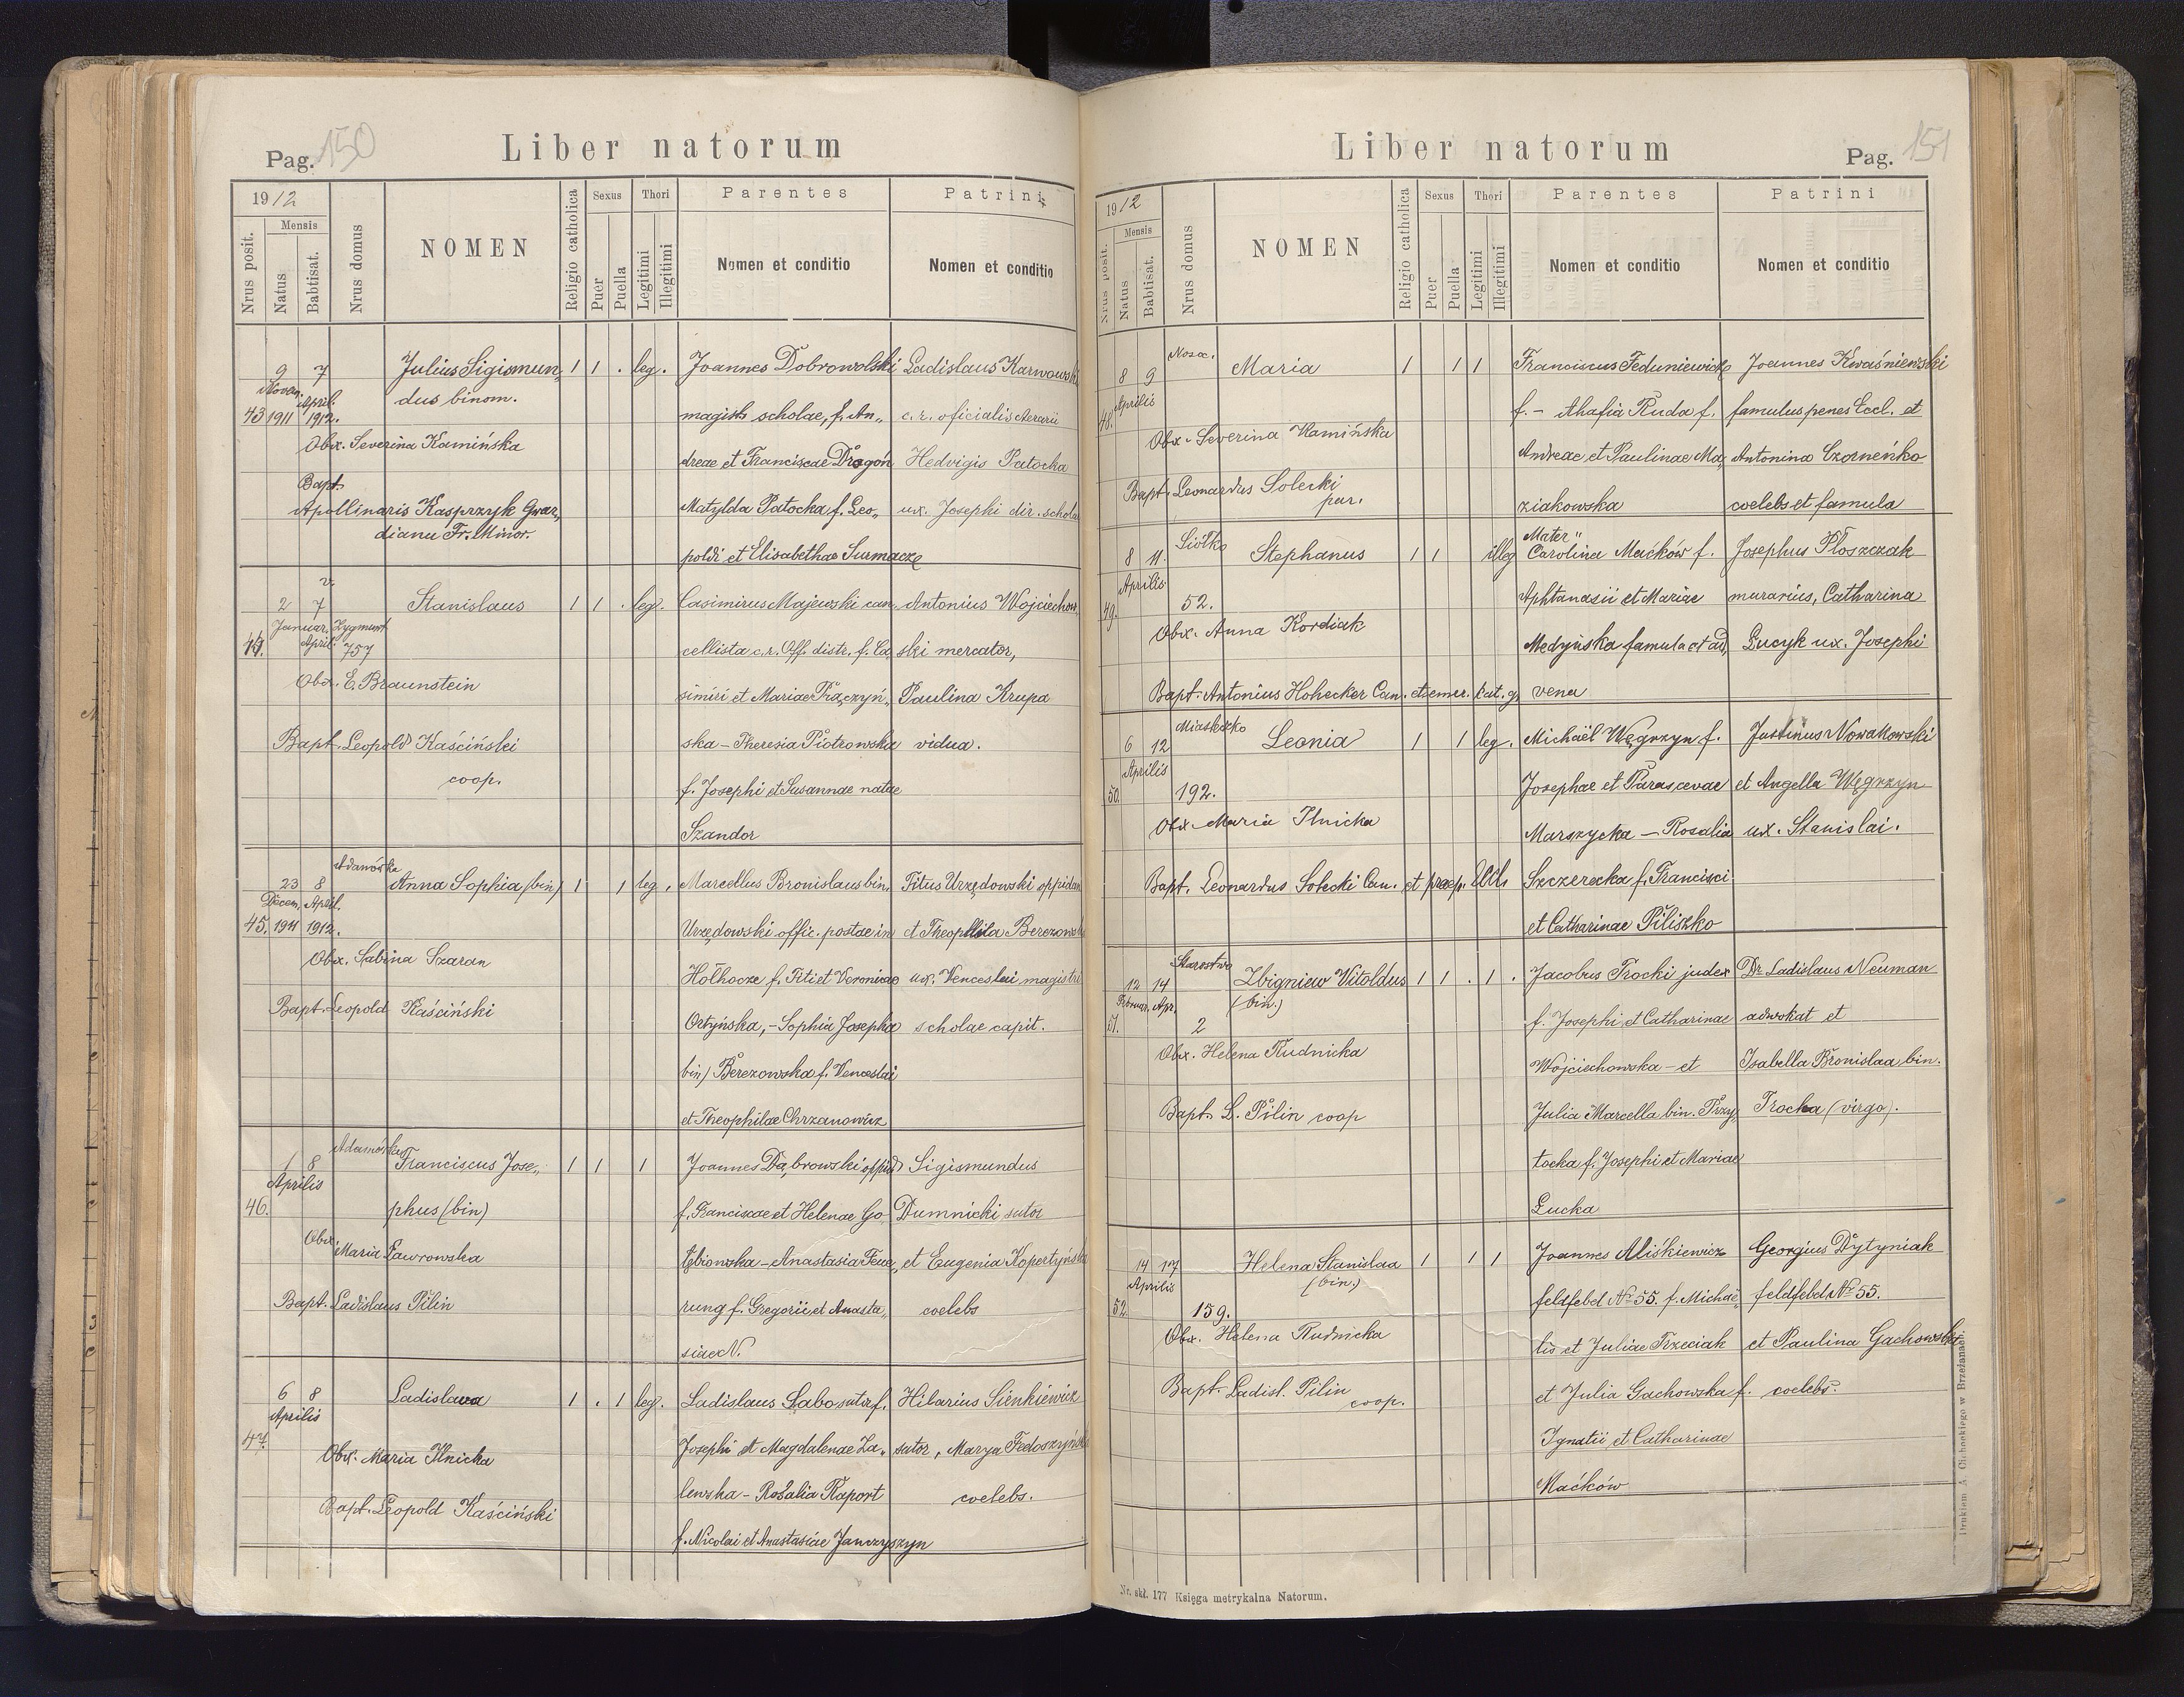 Pag. 150
Liber natorum
1912
Mensis
Nrus posit.
Natus
Babtisat.
Nrus domus
NOMEN
Religio catholica
Sexus
Puer
Puella
Thori
Legitimi
Illegitimi
Parentes
Nomen et conditio
Patrini
Nomen et conditio
9 7 Julius Sigismun„ 1 1 . leg. Joannes Dobrowolski Ladislaus Karwowski
Novem. April. dus binom. magistr scholae, f. An„ c. r. oficialis Aerarii
43 1911 1912.
Obx. Severina Kamińska dreae et Franciscae Dragoń Hedvigis Patocka
Bapt.
Apollinaris Kasprzyk Gwar„ Matylda Patocka f. Leo„ ux. Josephi dir. scholae
dianu Fr. Minor.
poldi et Elisabethae Surmacze
2 7 Stanislaus 1 1 . leg. Casimirus Majewski can„ Antonius Wojciechow„
Januar. April. Zygmunt
44. 757 cellista c.r. Off. distr. f. Ca„ ski mercator,
Obx. E. Braunstein simiri et Mariae Prączyń„ Paulina Krupa
Bapt. Leopold Kaściński ska – Theresia Piotrowska vidua.
coop. f. Josephi et Susannae natae
Szandor
Adamówka
23 8 Anna Sophia (bin) 1 1 leg. Marcellus Bronislaus bin. Titus Urzędowski oppidan
Decem. April.
45. 1911 1912. Urzędowski offic. postae in et Theophila Berezowska
Obx. Sabina Szaran Hołhocze f. Titi et Veronicae ux. Venceslai magistri
Bapt. Leopold Kaściński Ortyńska, – Sophia Josepha scholae capit.
bin) Berezowska f. Venceslai
et Theophilae Chrzanowicz
Adamówka
1 8 Franciscus Jose„ 1 1 1 Joannes Dąbrowski oppid Sigismundus
Aprilis
46. phus (bin) f. Franciscae et Helenae Go„ Dumnicki sutor
Obx. Maria Ławrowska łębiowska – Anastasia Feue„ et Eugenia Kopertyńska
Bapt. Ladislaus Pilin rung f. Gregorii et Anasta„ coelebs
siae N.
6 8 Ladislava 1 . 1 leg. Ladislaus Sabo sutor f. Hilarius Sienkiewicz
Aprilis
47. Josephi et Magdalenae Za„ sutor, Marya Fedoszyńska
Obx. Maria Ilnicka lewska – Rosalia Raport coelebs.
Bapt. Leopold Kaściński f. Nicolai et Anastasiae Janczyszyn
Liber natorum
Pag. 151
1912
Mensis
Nrus posit.
Natus
Babtisat.
Nrus domus
NOMEN
Religio catholica
Sexus
Puer
Puella
Thori
Legitimi
Illegitimi
Parentes
Nomen et conditio
Patrini
Nomen et conditio
Nosoc.
8 9 Maria 1 1 1 Franciscus Feduniewicz Joannes Kwaśniewski
Aprilis
48. f. – Ahafia Ruda f. famulus penes Eccl. et
Obx. Severina Kamińska Andreae et Paulinae Ma„ Antonina Czorneńko
Bapt. Leonardus Solecki ziakowska coelebs et famula
par.
Siółko Mater"
8 11. Stephanus 1 1 illeg Carolina Maćków f. Josephus Płoszczak
Aprilis
49. 52. Aphtanasii et Mariae murarius, Catharina
Obx. Anna Kordiak Medyńska famula et ad„ Łucyk ux. Josephi
Bapt. Antonius Hohecker Can. et emer. kat. g. vena
Miasteczko
6 12 Leonia 1 1 leg. Michaël Węgrzyn f. Justinus Nowakowski
Aprilis
50. 192. Josephae et Parascevae et Angella Węgrzyn
Obx. Maria Ilnicka Marszycka – Rosalia ux. Stanislai.
Bapt. Leonardus Solecki Can. et praep. Szczerecka f. Francisci
et Catharinae Piliszko
Starostwo
12 14 Zbigniew Vitoldus 1 1 . 1 . Jacobus Trocki judex Dr Ladislaus Neuman
Februar. Apr. (bin.)
51. 2 f. Josephi et Catharinae adwokat et
Obx. Helena Rudnicka Wojciechowska – et Isabella Bronislaa bin.
Bapt. L. Pilin coop Julia Marcella bin. Przy„ Trocka (virgo).
tocka f. Josephi et Mariae
Łucka
14 17 Helena Stanislaa 1 1 1 Joannes Aliśkiewicz Georgius Dytyniak
Aprilis (bin.)
52. 159. feldfebel № 55. f. Michaë„ feldfebel № 55.
Obx. Helena Rudnicka lis et Juliae Trzeciak et Paulina Gachowska
Bapt. Ladisl. Pilin et Julia Gachowska f. coelebs.
coop.
Ignatii et Catharinae
Maćków
Nr. skł. 177 Księga metrykalna Natorum.
Drukiem A. Cichockiego w Brzeżanach.